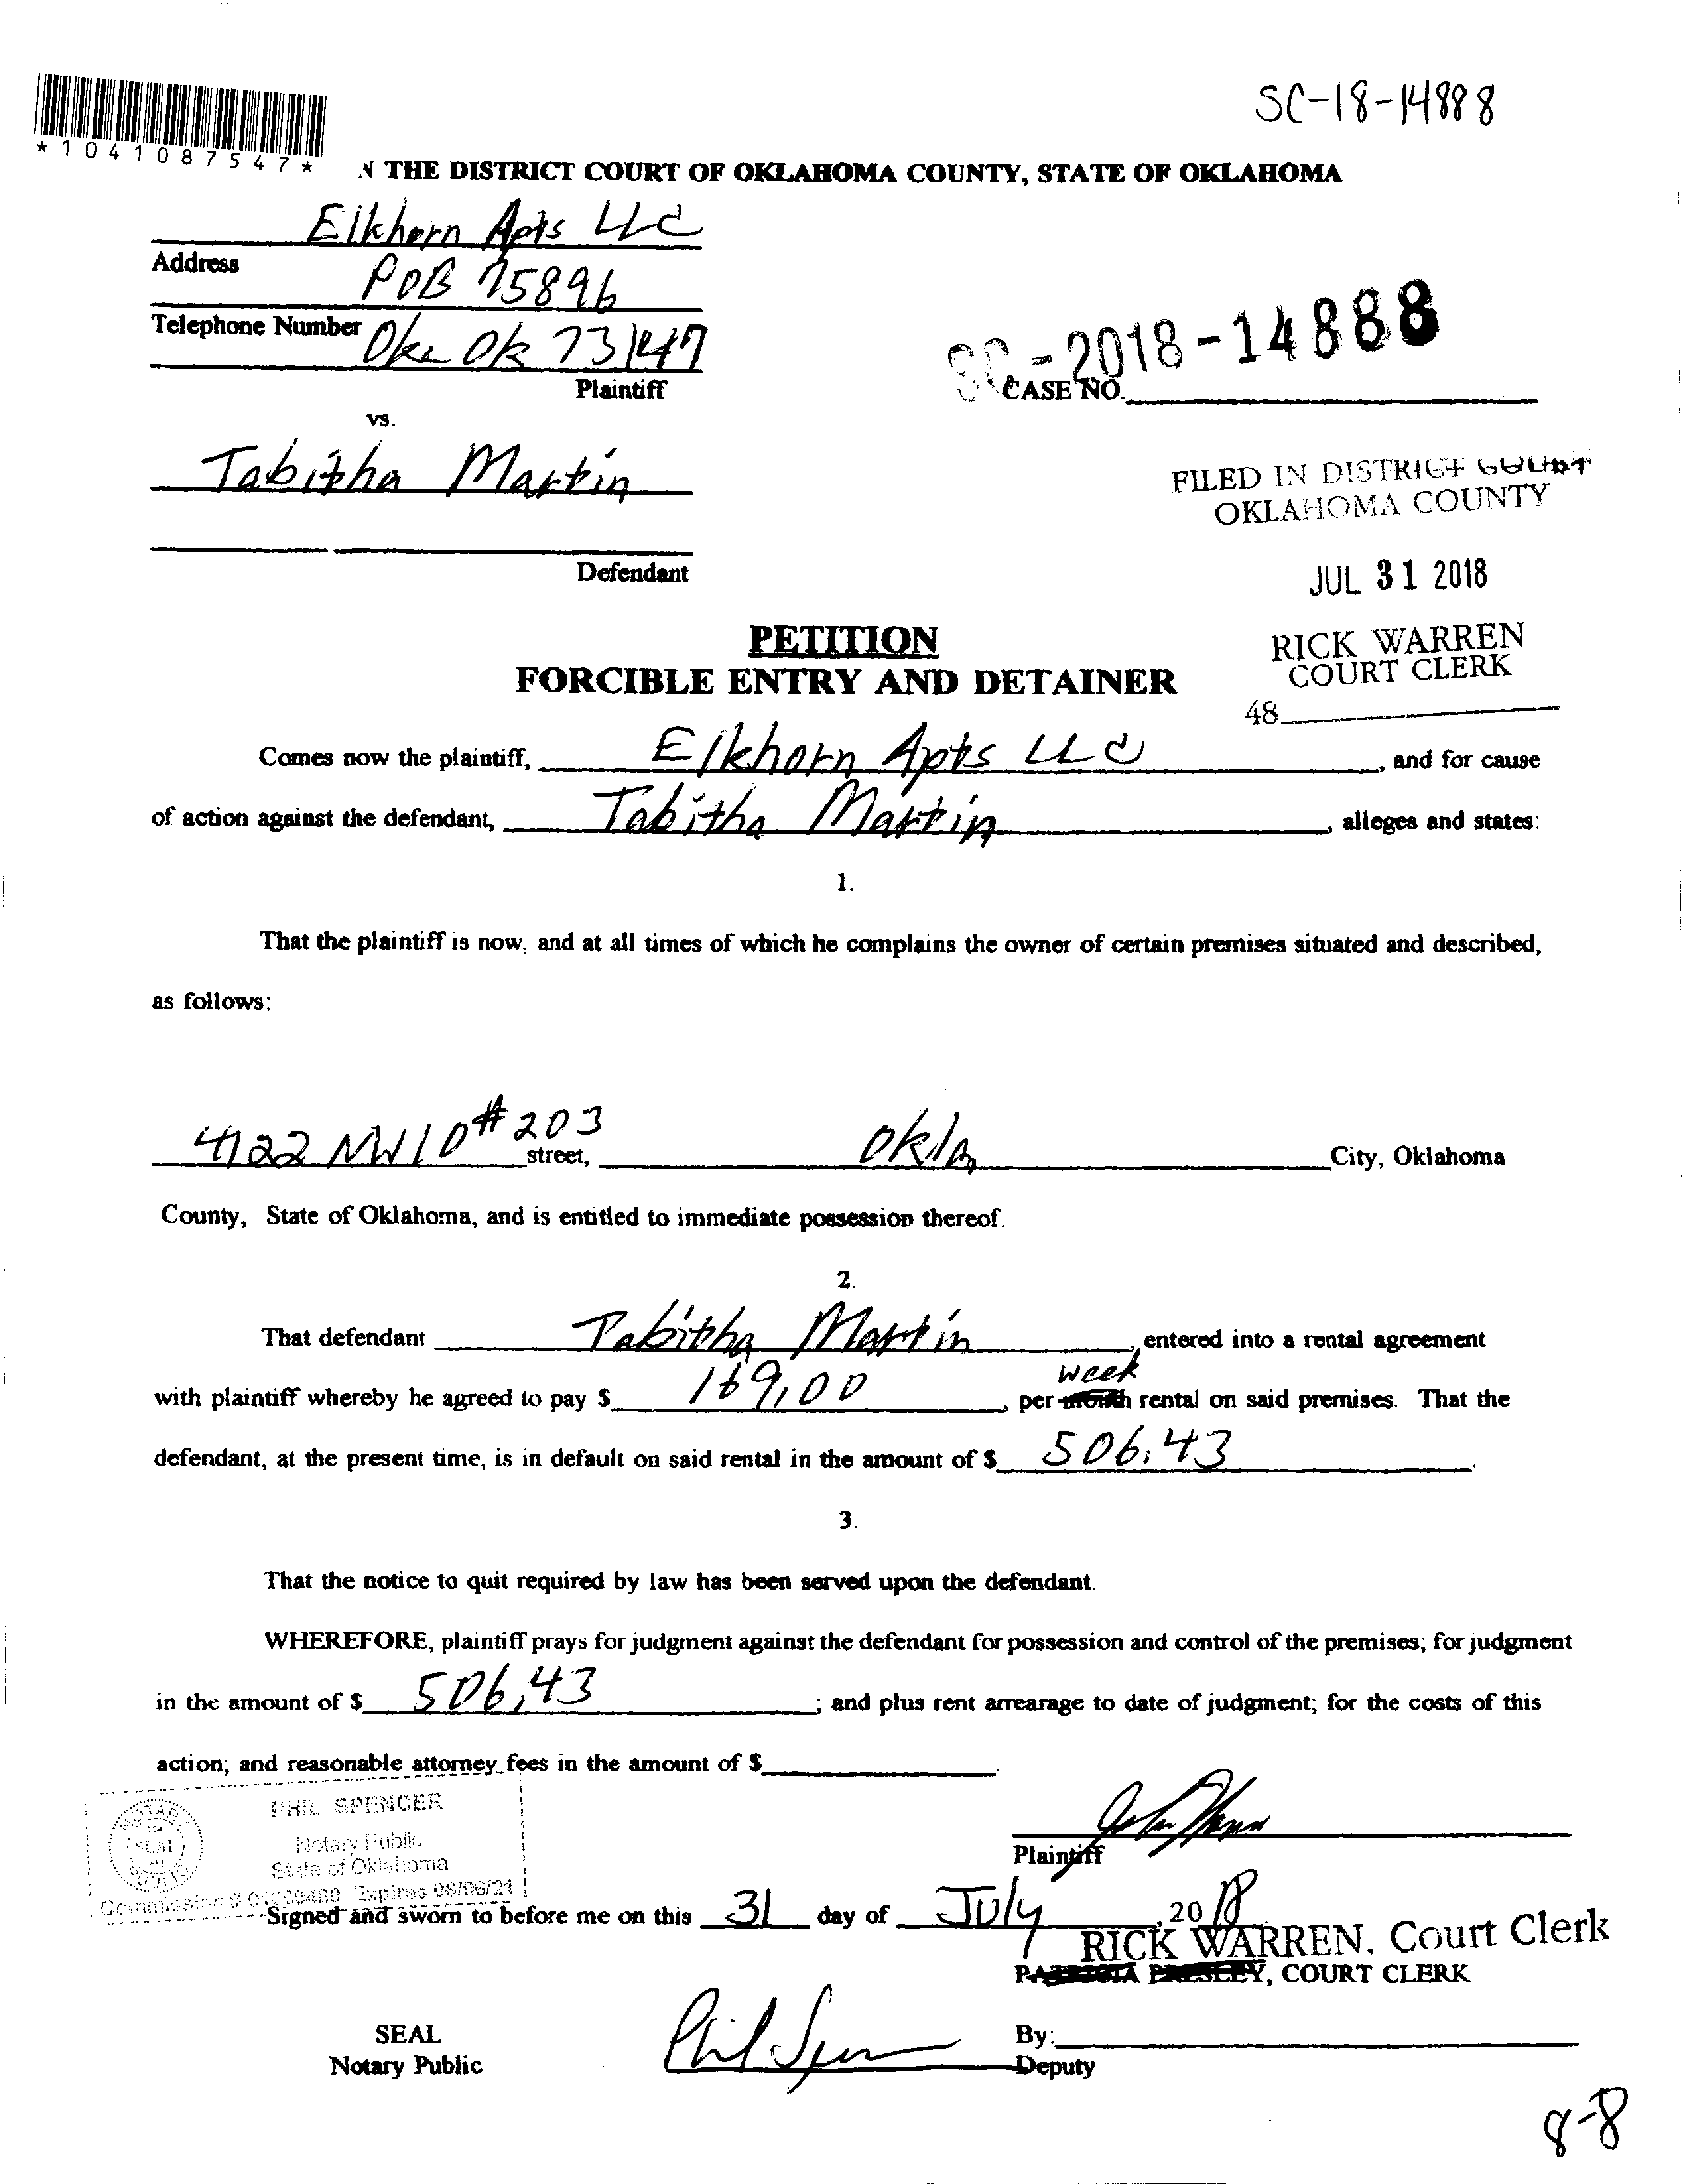 SC-18-14888
*1041087547*
N THE DISTRICT COURT OF OKLAHOMA COUNTY, STATE OF OKLAHOMA
Elkhorn Apts LLC
Address
POB 75896
Telephone Number
Okc Ok 73147
Plaintiff
SC-2018-14888
CASE NO.
vs.
Tabitha Martin
FILED IN DISTRICT COURT
OKLAHOMA COUNTY
Defendant
JUL 31 2018
PETITION
RICK WARREN
COURT CLERK
FORCIBLE ENTRY AND DETAINER
48
Comes now the plaintiff, Elkhorn Apts LLC, and for cause
of action against the defendant, Tabitha Martin, alleges and states:
1.
That the plaintiff is now, and at all times of which he complains the owner of certain premises situated and described,
as follows:
4122 NW 10 #203 street, Okla City, Oklahoma
County, State of Oklahoma, and is entitled to immediate possession thereof.
2.
That defendant Tabitha Martin, entered into a rental agreement
week
with plaintiff whereby he agreed to pay $ 169.00, per month rental on said premises. That the
defendant, at the present time, is in default on said rental in the amount of $ 506.43.
3.
That the notice to quit required by law has been served upon the defendant.
WHEREFORE, plaintiff prays for judgment against the defendant for possession and control of the premises; for judgment
in the amount of $ 506.43; and plus rent arrearage to date of judgment; for the costs of this
action; and reasonable attorney fees in the amount of $.
PHIL SPENCER
Notary Public
State of Oklahoma
Expires 06/06/21
Plaintiff
Signed and sworn to before me on this 31 day of July, 2018
RICK WARREN, Court Clerk
PATRICIA PRESLEY, COURT CLERK
SEAL
Notary Public
Phil Spencer
By:
Deputy
8-8